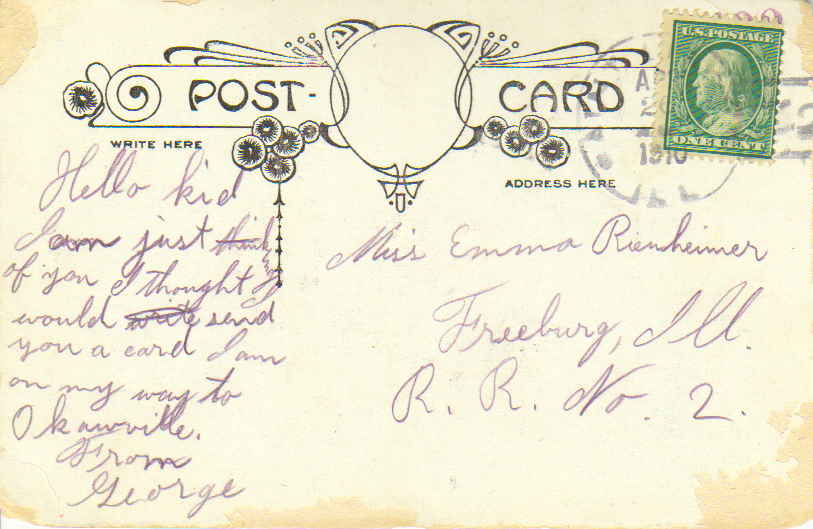 POST-CARD
U.S. POSTAGE
ONE CENT
AP
1910
WRITE HERE
ADDRESS HERE
Hello kid
I am just think
of you I thought I
would write send
you a card I am
on my way to
Okawville.
From
George
Miss Emma Rienheimer
Freeburg, Ill.
R. R. No. 2.